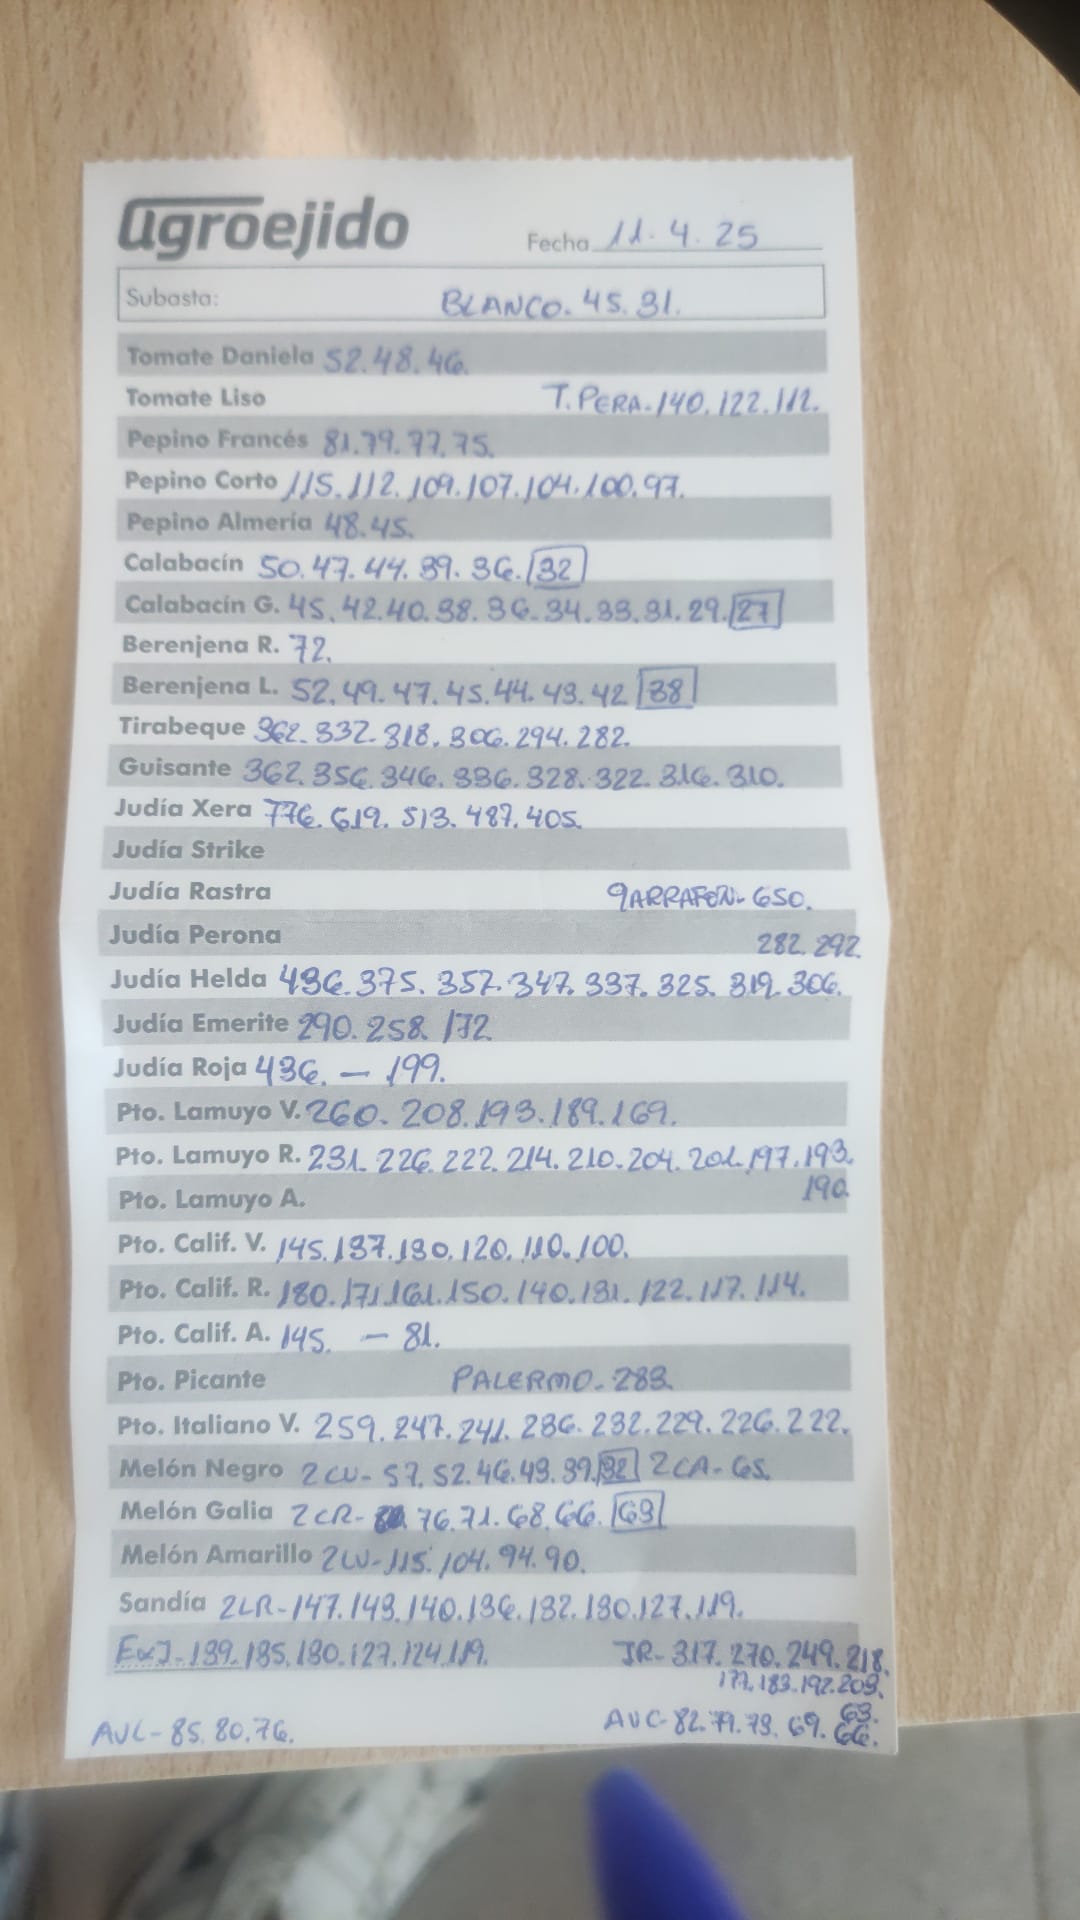 agroejido Fecha 11.4.25
Subasta: BLANCO. 45.31.
Tomate Daniela 52.48.46.
Tomate Liso T.PERA-140.122.112.
Pepino Francés 81.79.77.75.
Pepino Corto 115.112.109.107.104.100.97.
Pepino Almería 48.45.
Calabacín 50.47.44.39.36.32
Calabacín G. 45.42.40.38.36.34.33.31.29.27
Berenjena R. 72.
Berenjena L. 52.49.47.45.44.43.42 38
Tirabeque 362.332.318.306.294.282.
Guisante 362.356.346.336.328.322.316.310.
Judía Xera 776.619.513.487.405.
Judía Strike
Judía Rastra GARRAFON-650.
Judía Perona 282.292.
Judía Helda 436.375.357.347.337.325.319.306.
Judía Emerite 290.258.172.
Judía Roja 436. — 199.
Pto. Lamuyo V. 260.208.193.189.169.
Pto. Lamuyo R. 231.226.222.214.210.204.201.197.193.
Pto. Lamuyo A. 190.
Pto. Calif. V. 145.137.130.120.110.100.
Pto. Calif. R. 180.171.161.150.140.131.122.117.114.
Pto. Calif. A. 145. — 81.
Pto. Picante PALERMO-283.
Pto. Italiano V. 259.247.241.236.232.229.226.222.
Melón Negro 2CU-57.52.46.43.39.32 2CA-65.
Melón Galia 2CR- 76.71.68.66.63
Melón Amarillo 2LU-115.104.94.90.
Sandía 2LR-147.143.140.136.132.130.127.119.
ExJ-139.135.130.127.124.119. JR-317.270.249.218.
177.183.192.203.
63.
AVL-85.80.76. AUC-82.79.73.69.66.